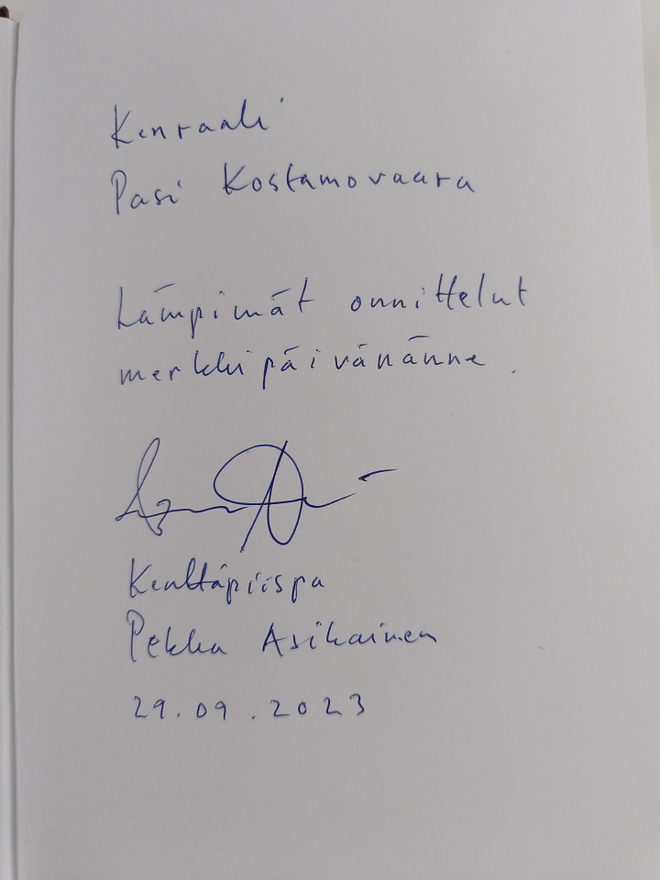 Kenraali
Pasi Kostamovaara
Lämpimät onnittelut
merkkipäivänänne.
Kenttäpiispa
Pekka Asikainen
29.09.2023